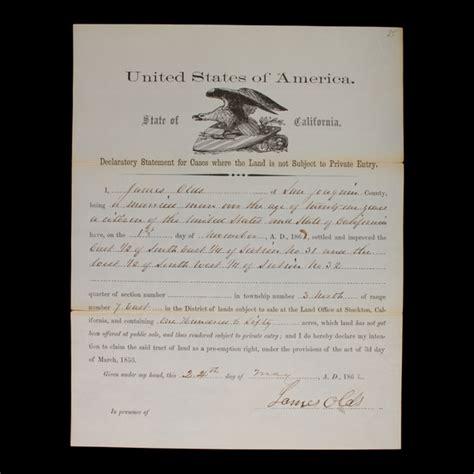 25
United States of America.
State of California.
Declaratory Statement for Cases where the Land is not Subject to Private Entry.
I, James Olds of San Joaquin County,
being a married man over the age of twenty one years
a citizen of the United States and State of California
have, on the 1st day of November A. D., 186 settled and improved the
East 1/2 of South East 1/4 of Section No 31 and the
West 1/2 of South West 1/4 of Section No 32
quarter of section number in township number 3 North of range
number 7 East in the District of lands subject to sale at the Land Office at Stockton, Cal-
ifornia, and containing One Hundred & Sixty acres, which land has not yet
been offered at public sale, and thus rendered subject to private entry; and I do hereby declare my inten-
tion to claim the said tract of land as a pre-emption right, under the provisions of the act of 3d day
of March, 1853.
Given under my hand, this 24th day of May A. D., 186
James Olds
In presence of